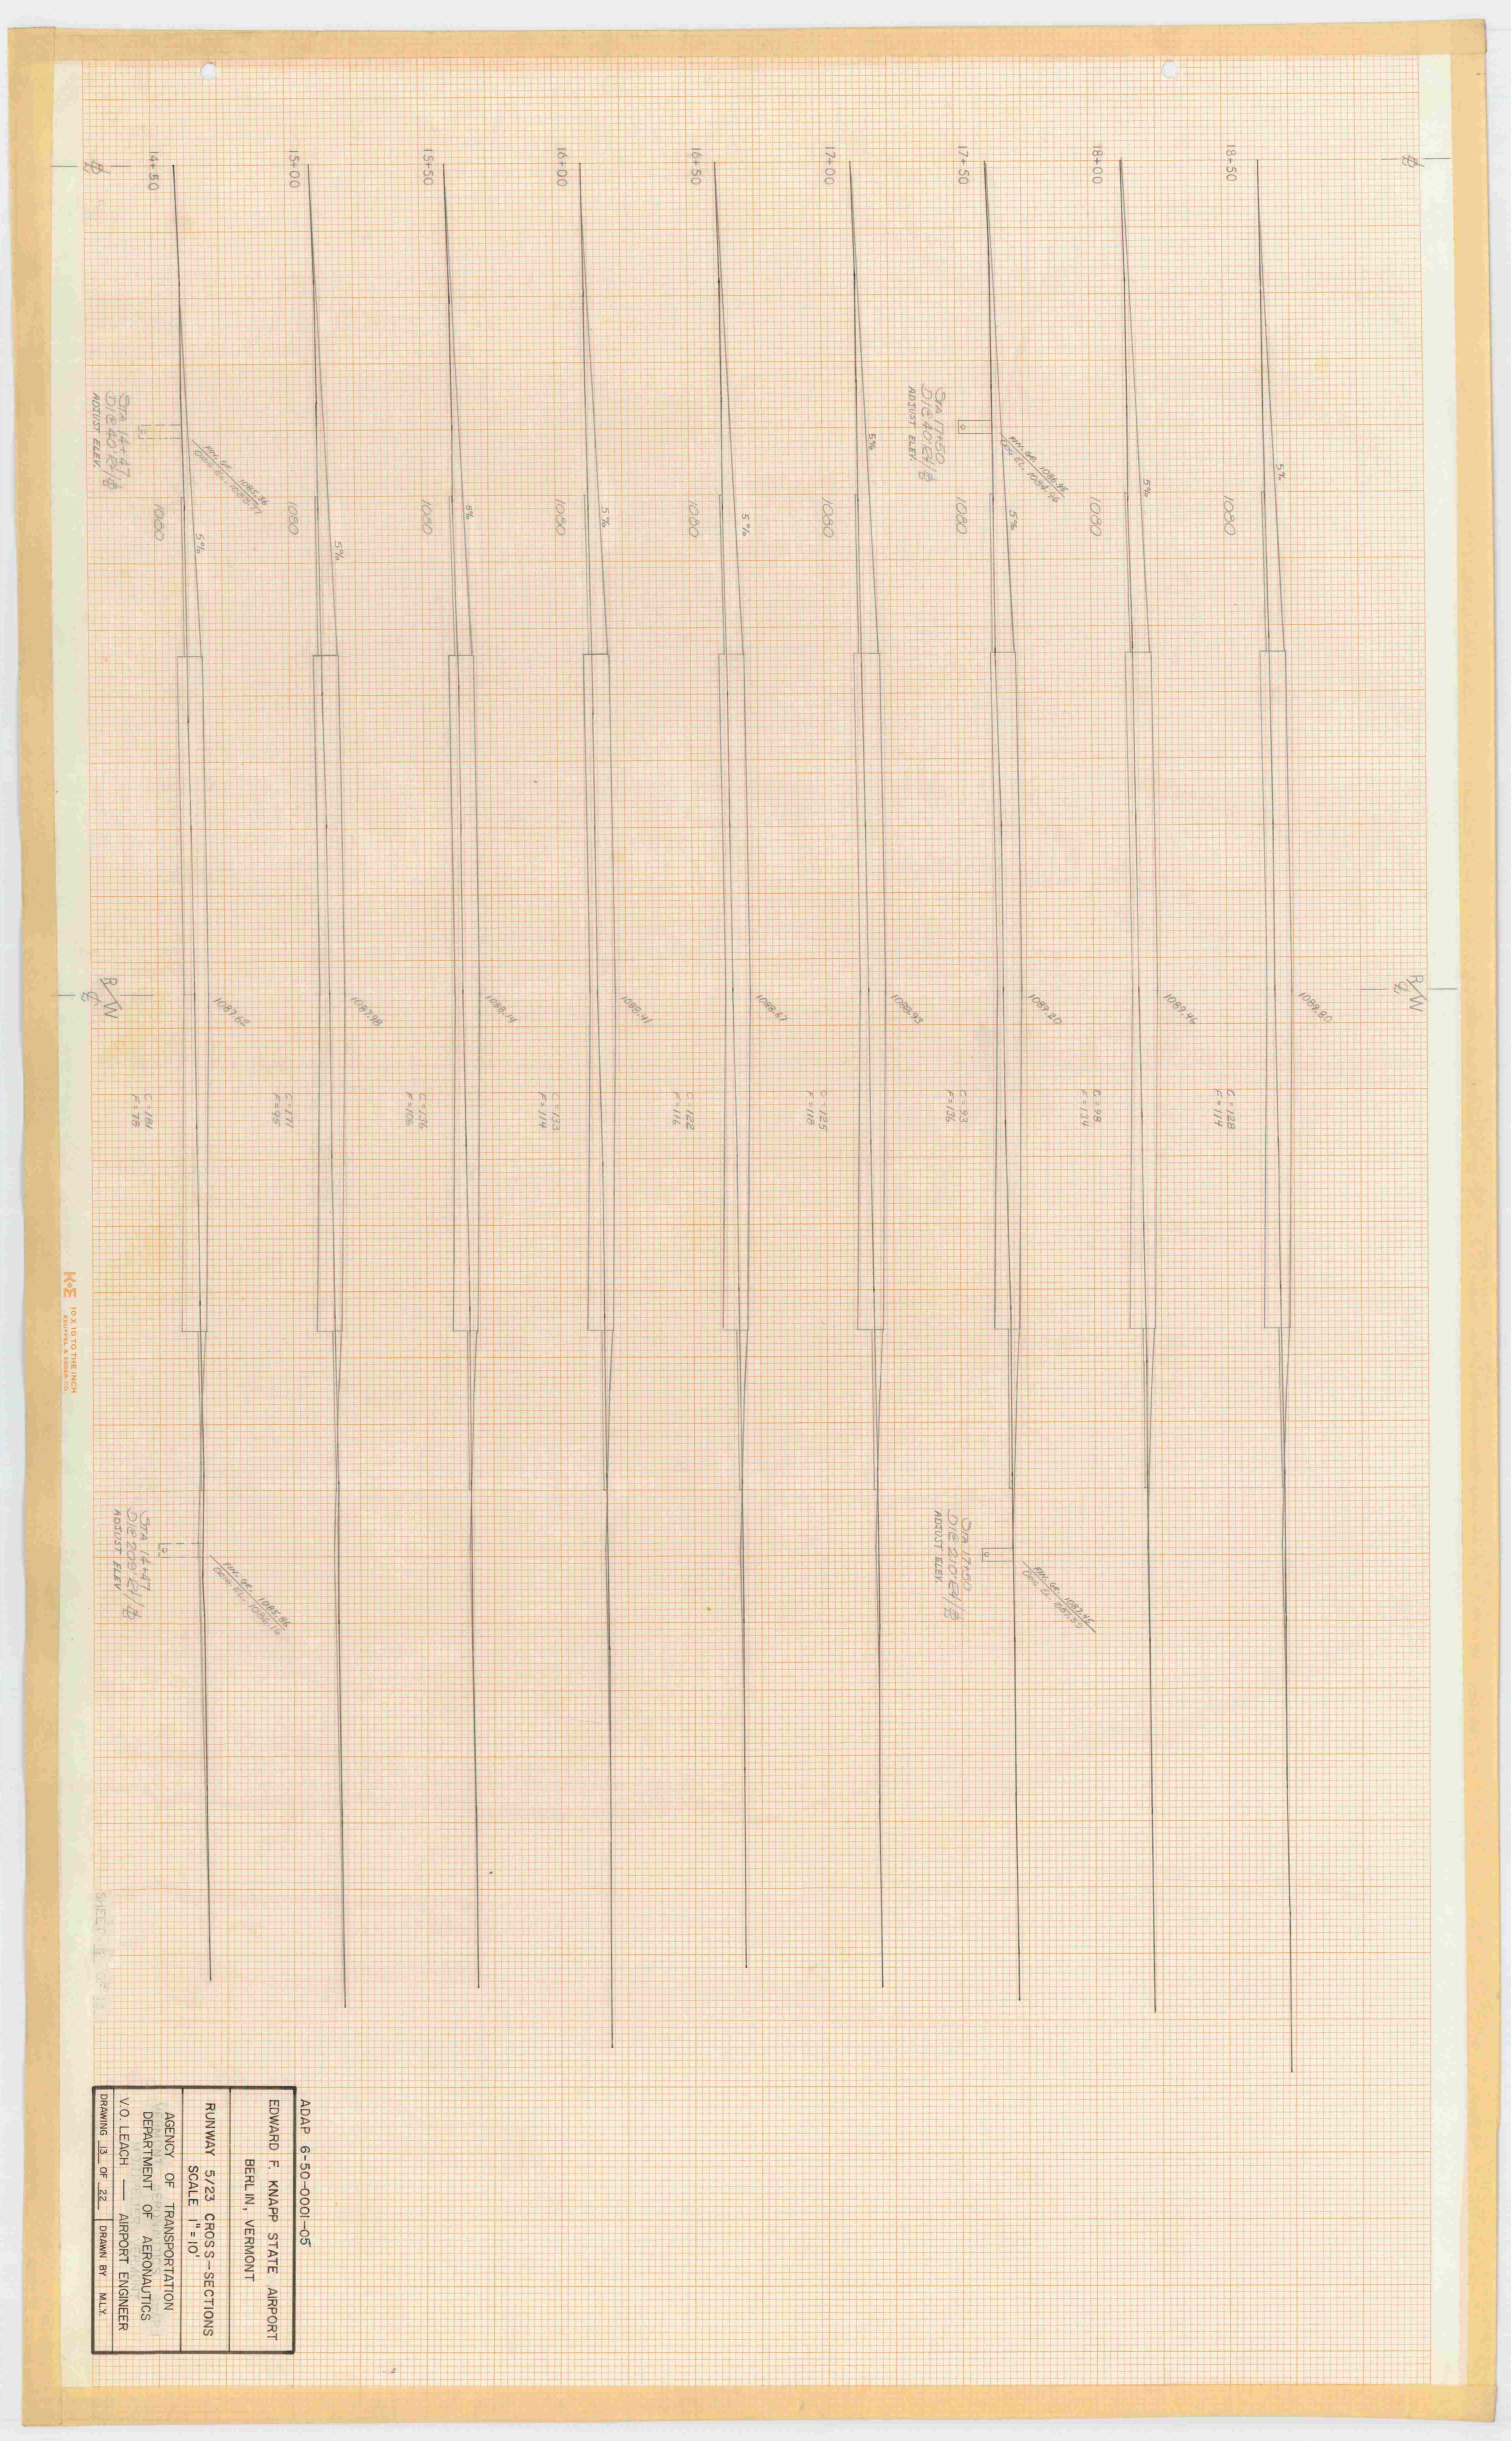 18+50
5%
1080
1089.80
C=128
F=114
18+00
5%
1080
1089.46
C=98
F=134
17+50
5%
1080
1089.20
C=93
F=136
STA 17+50
ADJUST ELEV.
FIN. GR. 1086.95
STA 17+50
ADJUST ELEV.
FIN. GR. 1087.45
17+00
5%
1080
1088.93
C=125
F=118
16+50
5%
1080
1088.67
C=122
F=116
16+00
5%
1080
1088.41
C=133
F=114
15+50
5%
1080
1088.14
C=136
F=106
15+00
5%
1080
1087.88
C=171
F=95
14+50
5%
1080
1087.62
C=181
F=78
STA 14+47
ADJUST ELEV.
FIN. GR. 1085.36
STA 14+47
ADJUST ELEV.
FIN. GR. 1085.86
R/W
R/W
K+E 10 X 10 TO THE INCH
KEUFFEL & ESSER CO.
SHEET OF
ADAP 6-50-0001-05
EDWARD F. KNAPP STATE AIRPORT
BERLIN, VERMONT
RUNWAY 5/23 CROSS-SECTIONS
SCALE 1"=10'
AGENCY OF TRANSPORTATION
DEPARTMENT OF AERONAUTICS
V.O. LEACH — AIRPORT ENGINEER
DRAWING 13 OF 22 DRAWN BY M.L.Y.